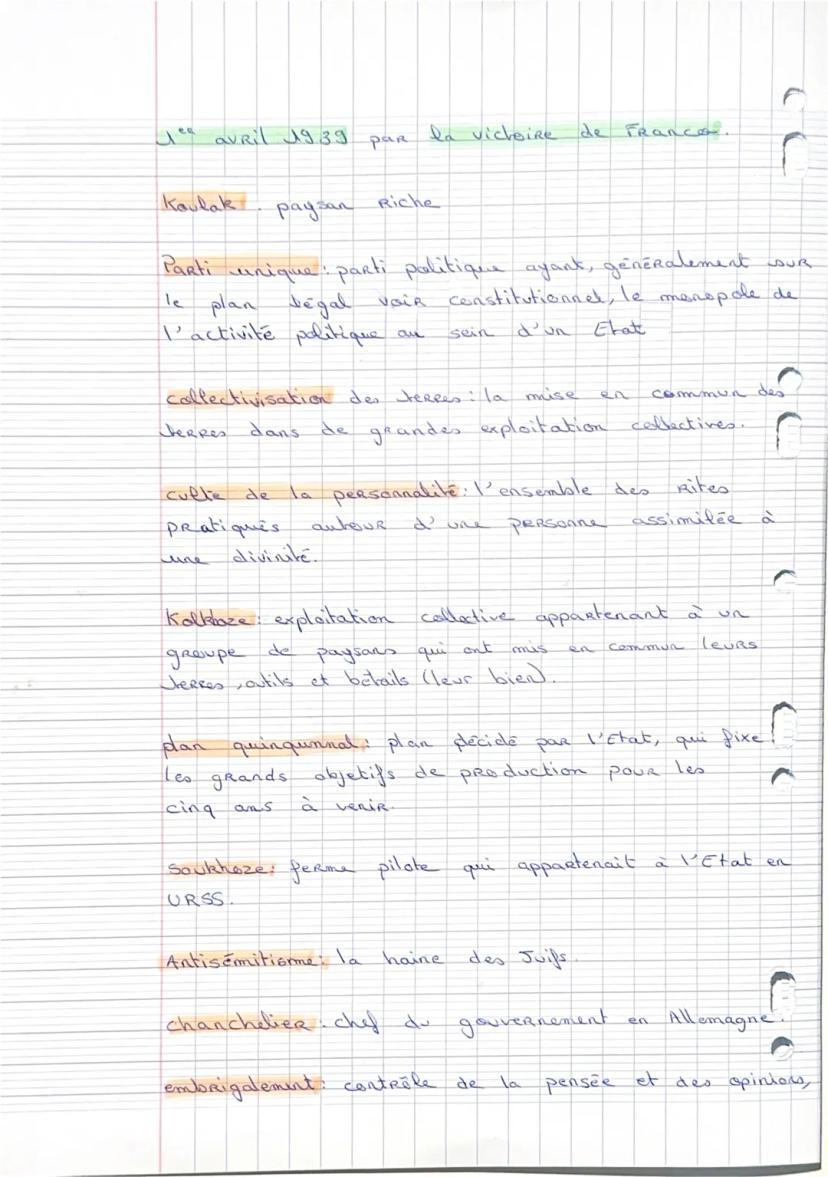 1er avril 1939 par la victoire de Franco.
Koulak : paysan riche
Parti unique : parti politique ayant, généralement sur
le plan légal voir constitutionnel, le monopole de
l'activité politique au sein d'un Etat
collectivisation des terres : la mise en commun des
terres dans de grandes exploitation collectives.
culte de la personnalité : l'ensemble des rites
pratiqués autour d'une personne assimilée à
une divinité.
Kolkhoze : exploitation collective appartenant à un
groupe de paysans qui ont mis en commun leurs
terres, outils et bétails (leur bien).
plan quinqunnal : plan décidé par l'Etat, qui fixe
les grands objetifs de production pour les
cinq ans à venir.
Soukhoze : ferme pilote qui appartenait à l'Etat en
URSS.
Antisémitisme : la haine des Juifs.
chanchelier : chef du gouvernement en Allemagne.
embrigadement : contrôle de la pensée et des opinions,